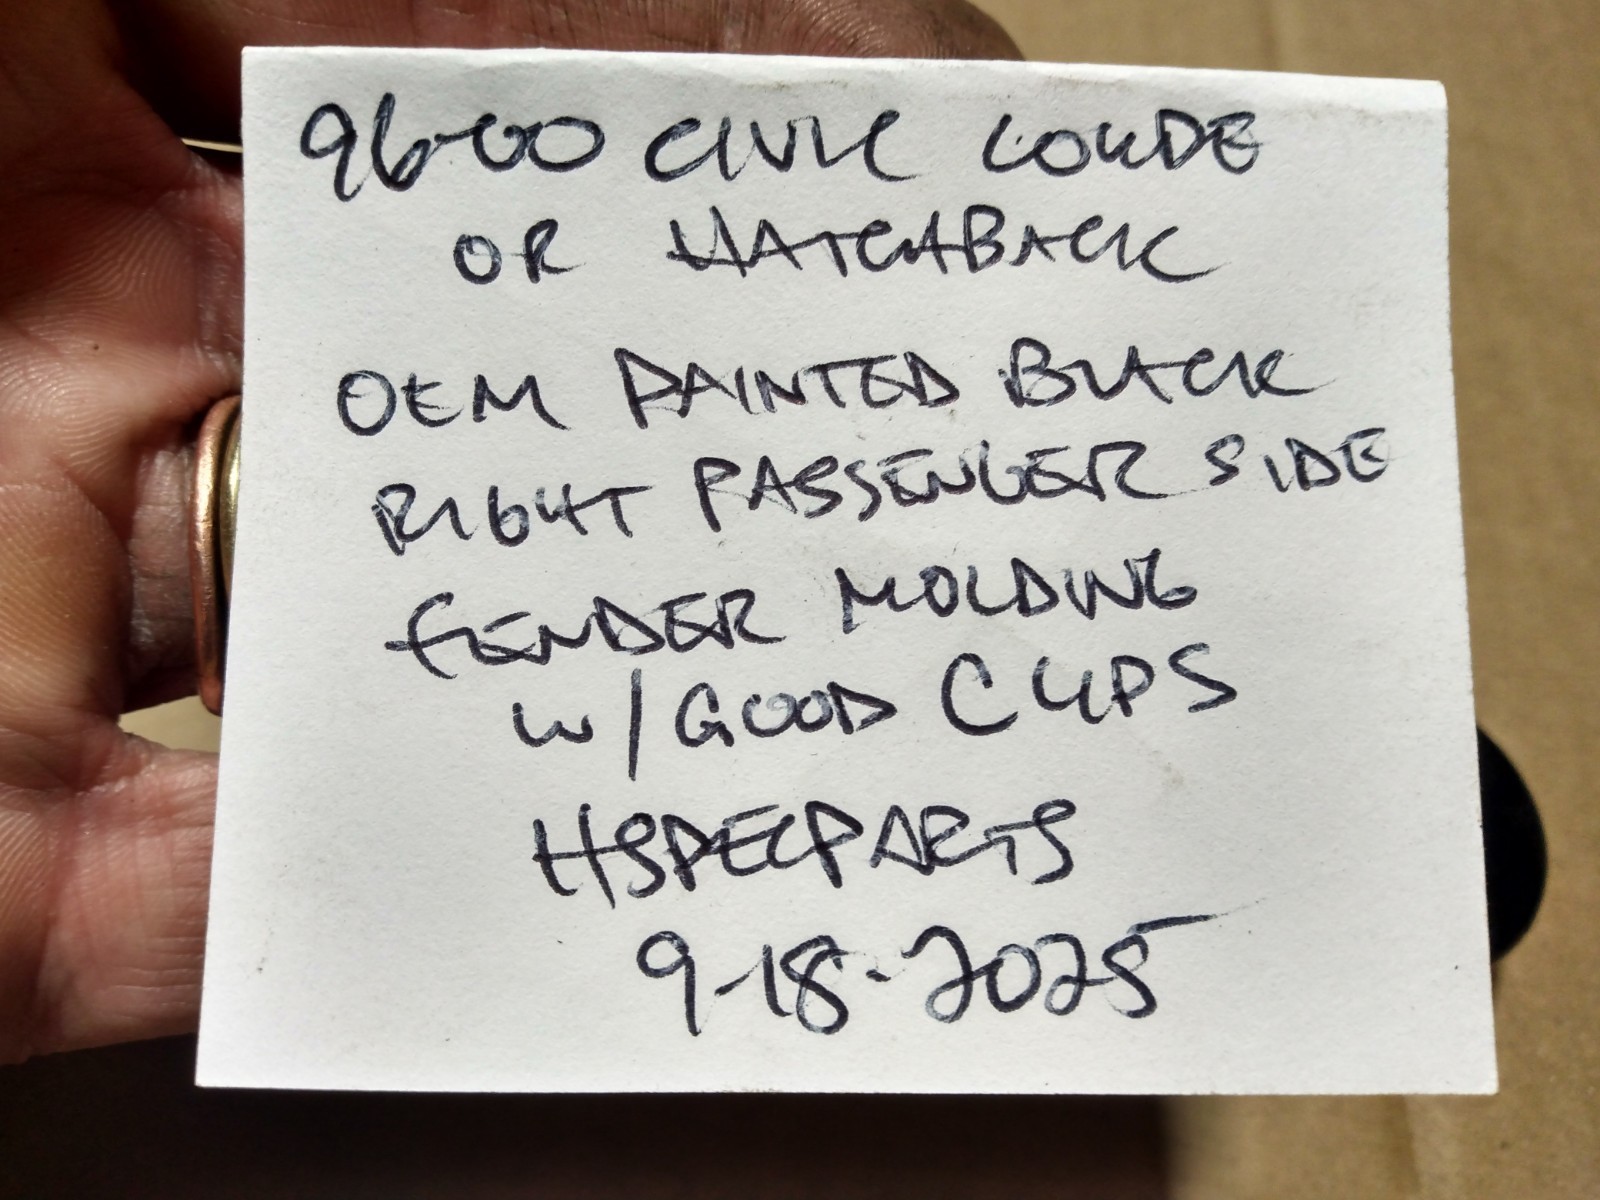 96-00 CIVIC COUPE
OR HATCHBACK
OEM PAINTED BLACK
RIGHT PASSENGER SIDE
FENDER MOLDING
W/GOOD CLIPS
HSPECPARTS
9-18-2025